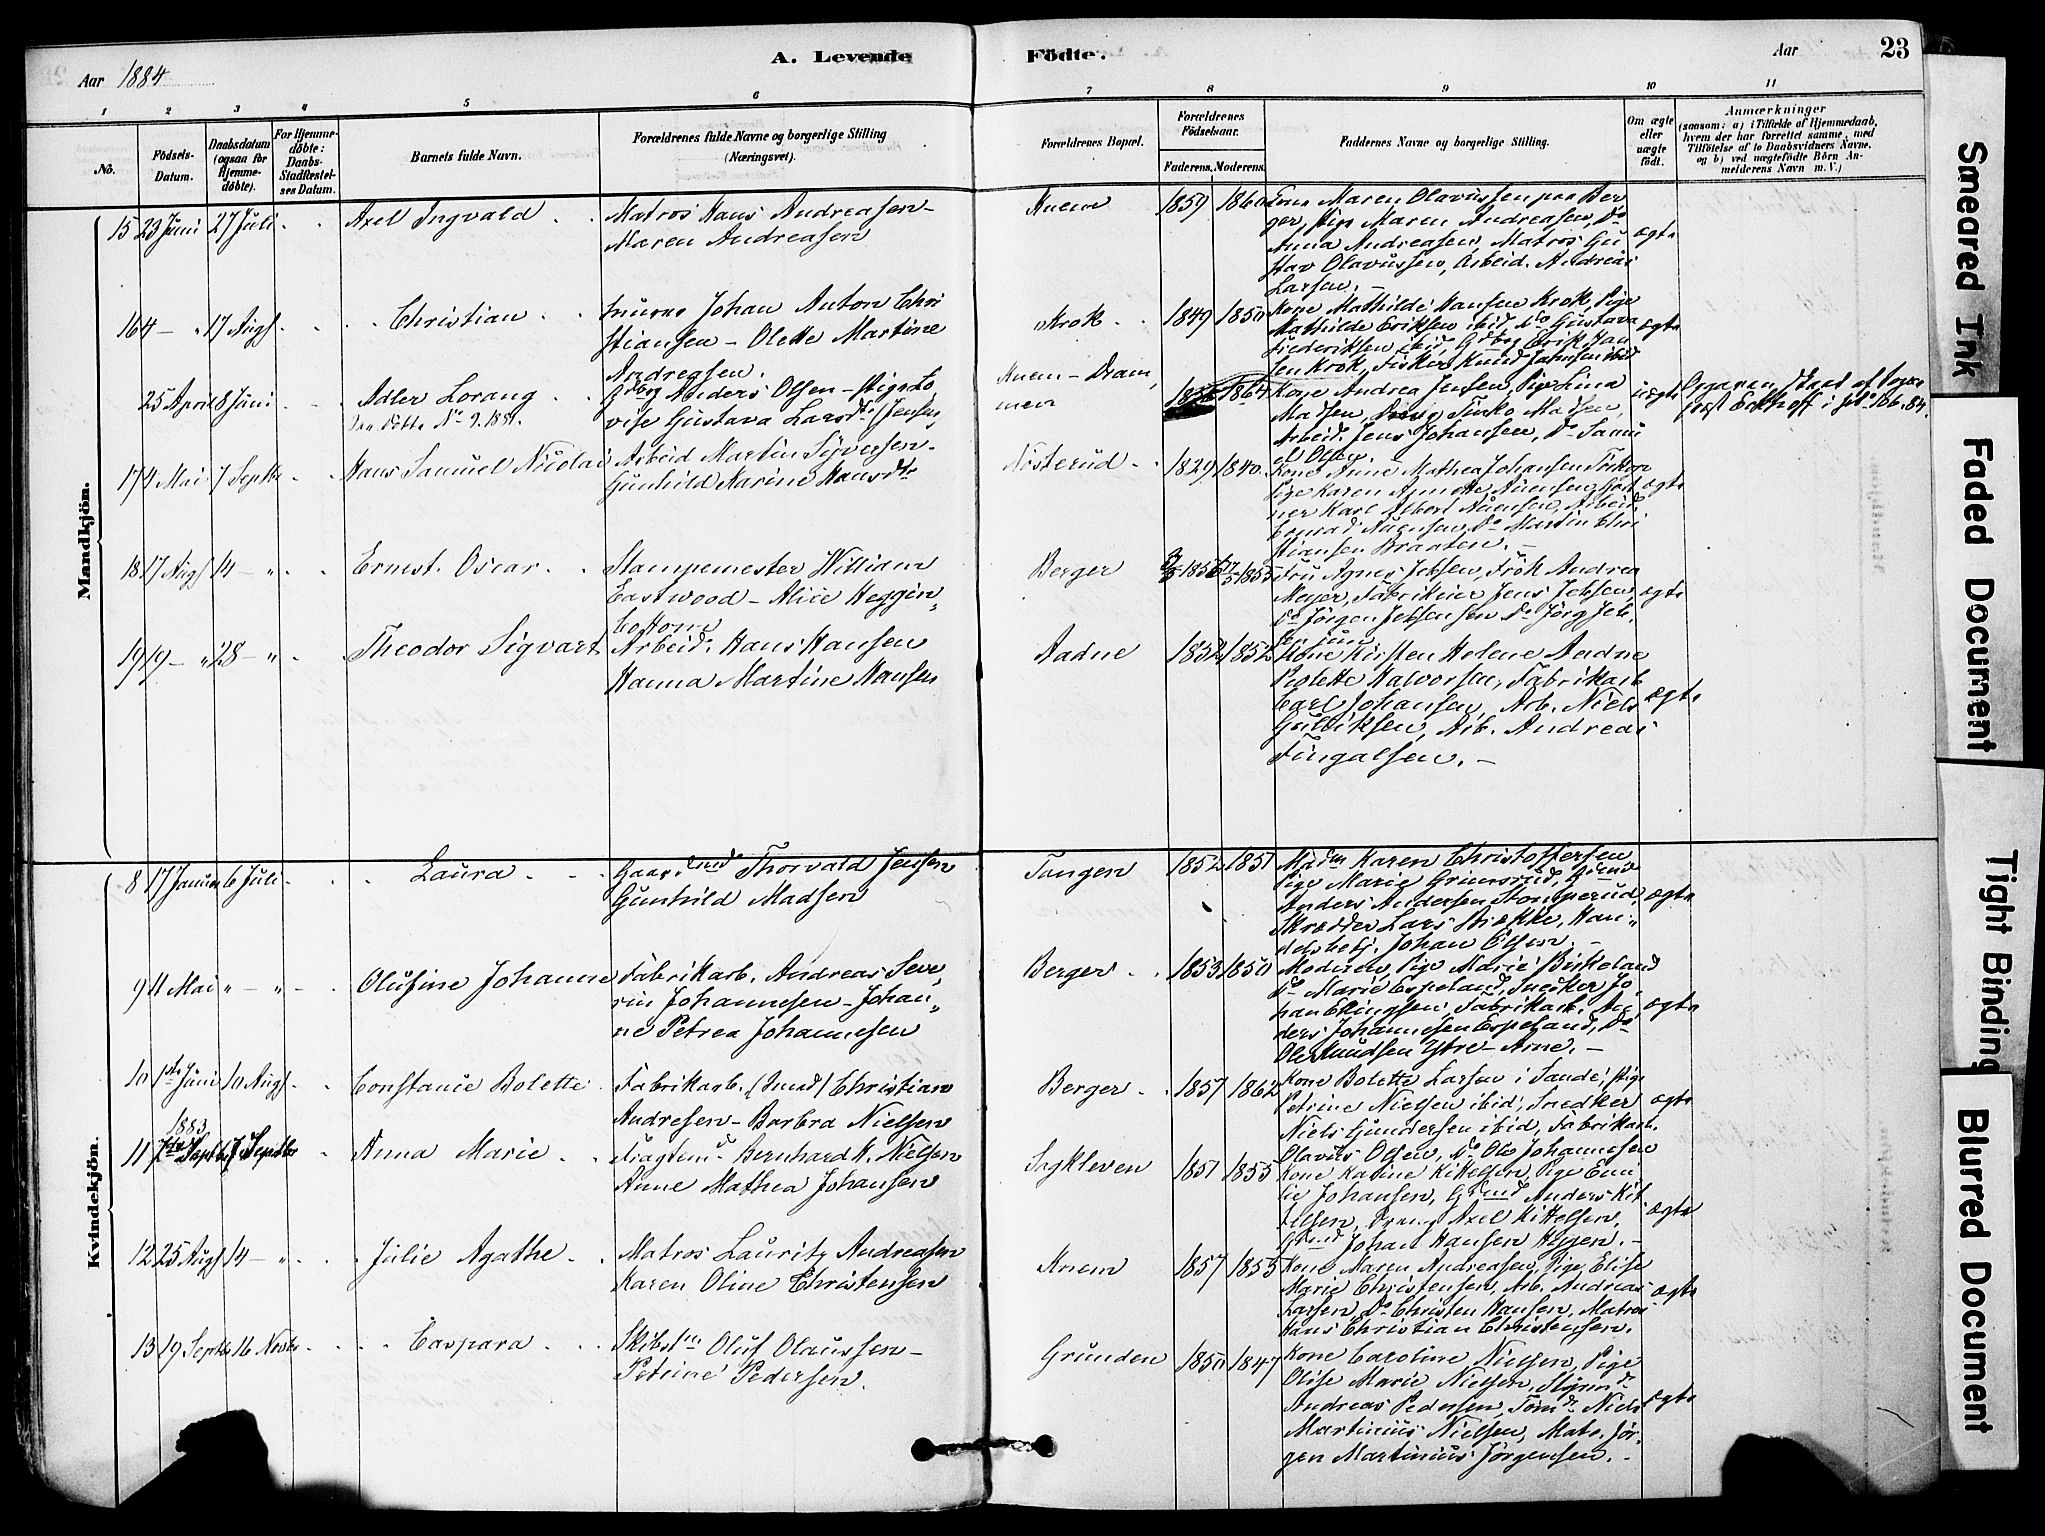 Aar 1884
A. Levende
Födte.
Aar
23
1 2 3 4 5 6 7 8 9 10 11
No.
Födsels-Datum.
Daabsdatum (ogsaa for Hjemme-döbte).
For Hjemme-döbte: Daabs-Stadfæstel-ses Datum.
Barnets fulde Navn.
Forældrenes fulde Navne og borgerlige Stilling (Næringsvei).
Forældrenes Bopæl.
Forældrenes Födselsaar.
Faderens. Moderens.
Faddernes Navne og borgerlige Stilling.
Om ægte eller uægte födt.
Anmærkninger
(saasom: a) i Tilfælde af Hjemmedaab,
hvem der har forrettet samme, med
Tilföielse af to Daabsvidners Navne.
og b) ved uægtefödte Börn An-
melderens Navn m. V.)
Mandkjön.
15 23 Juni 27 Juli Axel Ingvald
Matros Hans Andreasen -
Maren Andreasen
Knem 1859 1860
Kone Maren Olavussen paa Ber
ger, Pige Maren Andreasen, Do
Anna Andreasen, Matros Gu
stav Olavussen, Arbeid. Andreas
Larsen. -
ægte
16 4 - " 17 Aug Christian
Johan Anton Chri
stiansen - Olette Martine
Andreasen.
Krok 1849 1850
Kone Mathilde Hansen Krok, Pige
Mathilde Eriksen ibid, Do Gustava
Frederiksen ibid, Gdbrg Erik Han
sen Krok, Fisker Knud Jahnsen ibid
ægte
25 April 8 Juni Adler Lorang
No 9. 1884.
Gdbrg Anders Olsen - Pige Lo
vise Gustava Larsdtr (Jensen)
Knem - Dram
men
1864
Kone Andrea Jensen, Pige Lina
Madsen, Madsen,
Arbeid. Jens Johansen, Do Samu
el Olsen.
uægte
17 4 Mai 7 Septbr Hans Samuel Nicolai
Arbeid Martin Syversen -
Gunhild Karine Hansdtr
Nösterud 1829 1840
Kone Anne Mathea Johansen
Pige Karen Annette
ner Karl Albert Arbeid.
Do Martin Chri
stiansen Braaten. -
ægte
18 17 Aug 14 - " Ernest Oscar
Stampemester William
Eastwood - Alice Heggin„
bottom
Berger 1856 1855
Fru Agnes Jebsen, Frök Andrea
Meyer, Fabrikeier Jens Jebsen,
Do Jörgen Jebsen Do Jörg Jeb„
sen jun
ægte
19 19 - " 28 - " Theodor Sigvart
Arbeid. Hans Hansen
Hanna Martine Hansen
Aadne 1852 1852
Kone Kirsten Helene Aadne
Pige Halvorsen, Fabrikarb
Carl Johansen, Arb. Niels
Gulliksen, Arb. Andreas
Fingalsen. -
ægte
Kvindekjön.
8 17 Januar 6 Juli Laura
Gaar. Thorvald Jensen
Gunhild Madsen
Tangen 1852 1851
Madm Karen Christoffersen
Pige Marie Grimsrud,
Anders Andersen Stomperud,
Skrædder Lars Bække, Han„
delsbetj. Johan Olsen. -
ægte
9 11 Mai " - " - Olufine Johanne
Fabrikarb. Andreas Seve„
rin Johannesen - Johan„
ne Petrea Johannesen
Berger 1853 1850
Moderen, Pige Marie Birkeland
Do Marie Espeland, Snedker Jo„
han Ellingsen, Fabrikarb. An„
ders Johannesen Espeland, Do
Ole Knudsen Ytre-Arne. -
ægte
10 1ste Juni 10 Aug Constance Bolette
Fabrikarb. (Smed) Christian
Andresen - Barbra Nielsen
Berger 1857 1862
Kone Bolette Larsen i Sande, Pige
Petrine Nielsen ibid, Snedker
Niels Gundersen ibid, Fabrikarb.
Olavus Olsen, Do Ole Johannesen
ægte
1883
11 7 Septbr Anna Marie
Bernhard N. Nielsen
Anne Mathea Johansen
Sagkleven 1851 1855
Kone Karine Kittelsen, Pige Emi
lie Johansen, Anders Kit
telsen, Axel Kittelsen,
Johan Hansen Heggen. -
ægte
12 25 Aug 14 - " Julie Agathe
Matros Lauritz Andreasen
Karen Oline Christensen
Knem 1857 1855
Kone Maren Andreasen, Pige Elise
Marie Christensen, Arb. Andreas
Larsen, Do Christen Hansen, Matros
Hans Christian Christensen.
ægte
13 19 Septbr 16 Novbr Caspara
Skibstm Oluf Olaussen -
Petrine Pedersen.
Grunden 1850 1847
Kone Caroline Nielsen, Pige
Olise Marie Nielsen, Styrmd
Andreas Pedersen, Tömd Niels
Martinius Nielsen, Matr. Jör„
gen Martinius Jörgensen. -
ægte
Smeared Ink
Faded Document
Tight Binding
Blurred Document